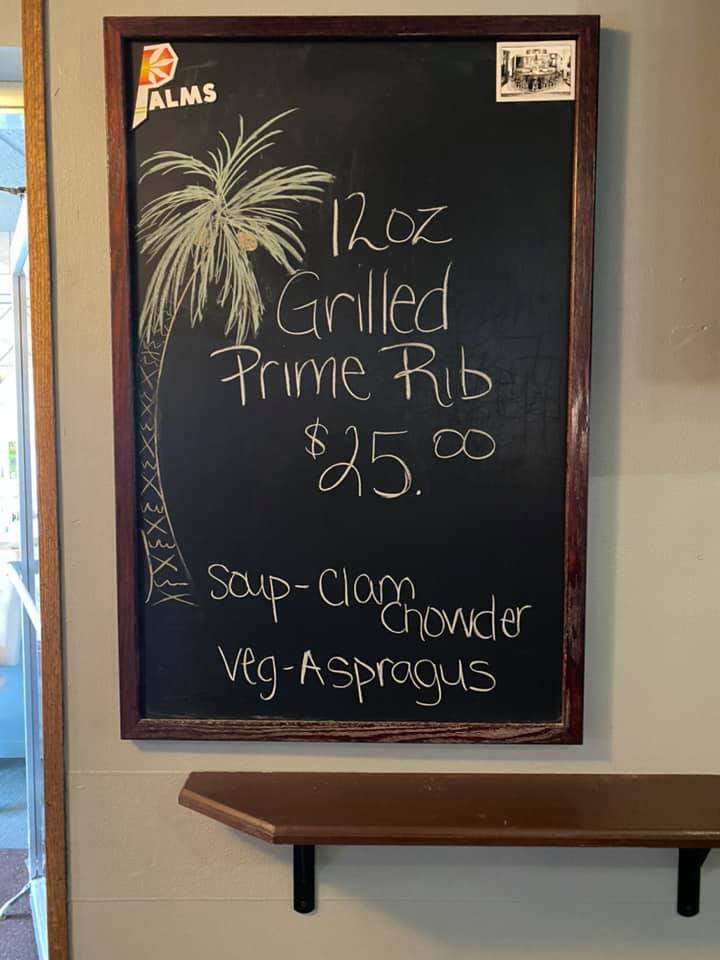 PALMS
12oz
Grilled
Prime Rib
$25.00
Soup-Clam
Chowder
Veg-Aspragus